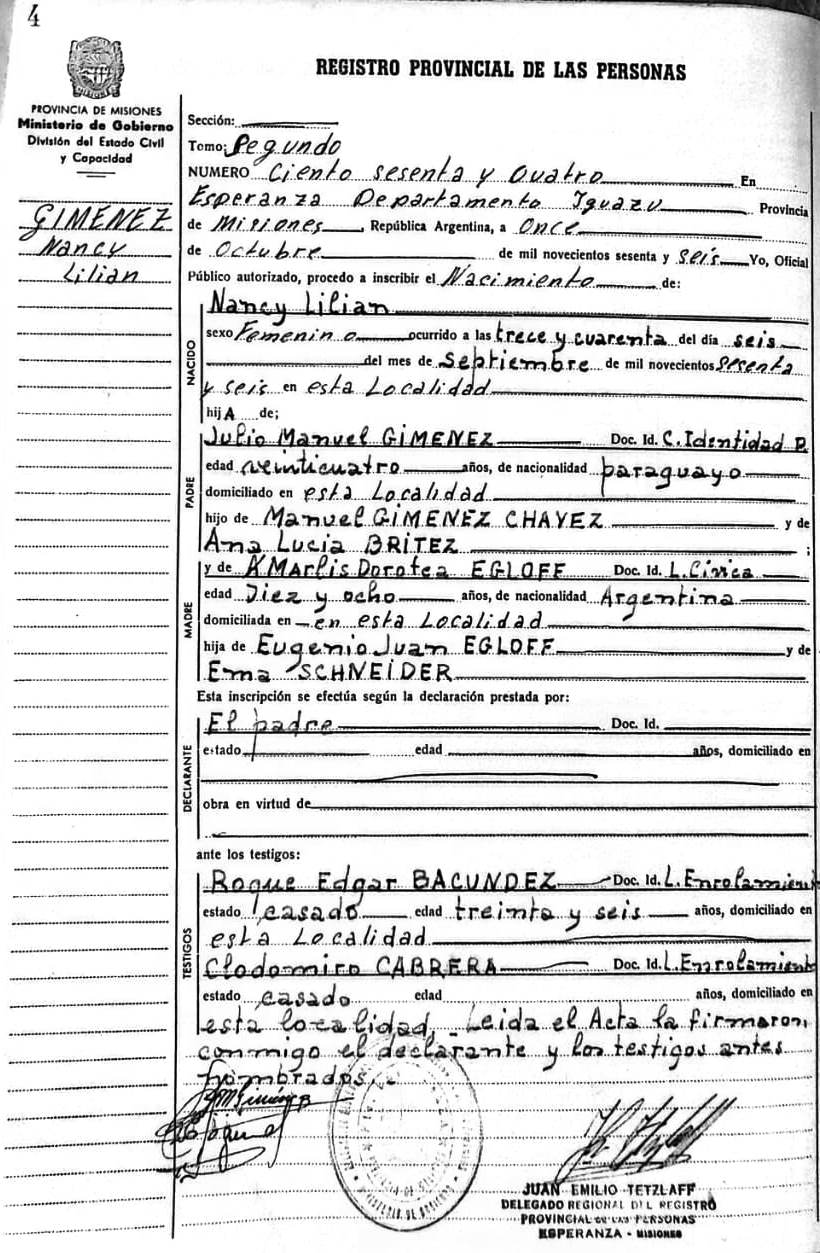 4
REGISTRO PROVINCIAL DE LAS PERSONAS
PROVINCIA DE MISIONES
Ministerio de Gobierno
División del Estado Civil
y Capacidad
GIMENEZ
Nancy
Lilian
Sección:
Tomo: Segundo
NUMERO Ciento sesenta y Cuatro En
Esperanza Departamento Iguazu Provincia
de Misiones, República Argentina, a Once
de Octubre de mil novecientos sesenta y seis Yo, Oficial
Público autorizado, procedo a inscribir el Nacimiento de:
NACIDO
Nancy Lilian
sexo Femenino ocurrido a las trece y cuarenta del día seis
del mes de Septiembre de mil novecientos sesenta
y seis en esta Localidad
hijA de;
PADRE
Julio Manuel GIMENEZ Doc. Id. C. Identidad P.
edad veinticuatro años, de nacionalidad paraguayo
domiciliado en esta Localidad
hijo de Manuel GIMENEZ CHAVEZ y de
Ana Lucia BRITEZ ;
MADRE
y de Marlis Dorotea EGLOFF Doc. Id. L. Cívica
edad Diez y ocho años, de nacionalidad Argentina
domiciliada en en esta Localidad
hija de Eugenio Juan EGLOFF y de
Ema SCHNEIDER
Esta inscripción se efectúa según la declaración prestada por:
DECLARANTE
El padre Doc. Id.
estado edad años, domiciliado en
obra en virtud de
ante los testigos:
TESTIGOS
Roque Edgar BACUNDEZ Doc. Id. L. Enrolamiento
estado casado edad treinta y seis años, domiciliado en
esta Localidad
Clodomiro CABRERA Doc. Id. L. Enrolamiento
estado casado edad años, domiciliado en
esta localidad. Leida el Acta la firmaron,
conmigo el declarante y los testigos antes
nombrados.
JUAN EMILIO TETZLAFF
DELEGADO REGIONAL DEL REGISTRO
PROVINCIAL DE LAS PERSONAS
ESPERANZA - MISIONES